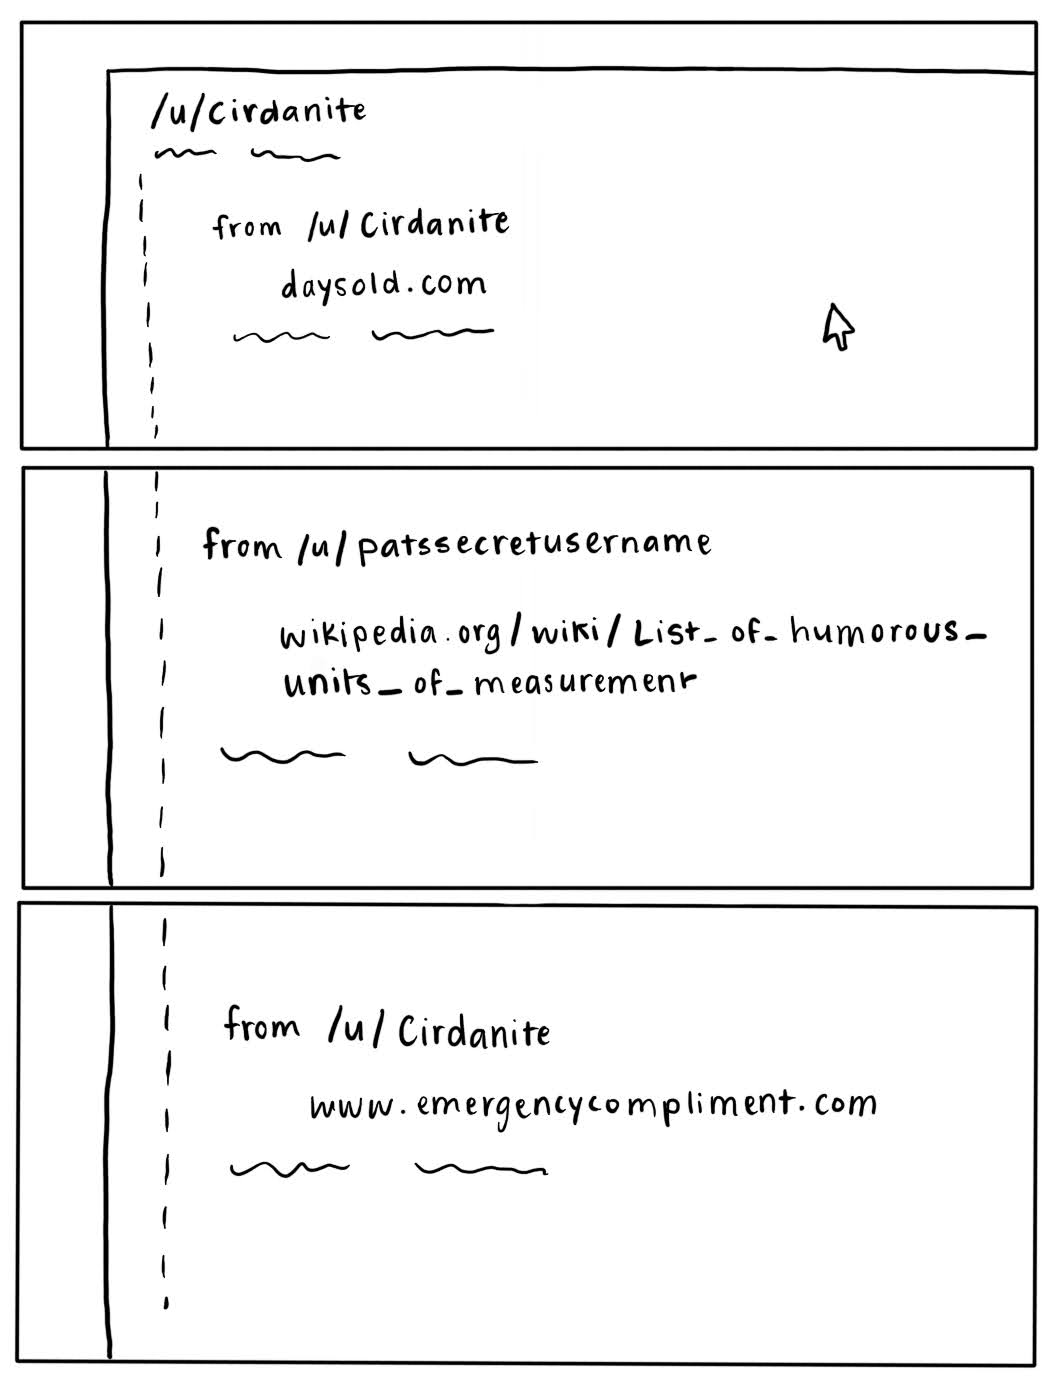 /u/Cirdanite
from /u/Cirdanite
daysold.com
from /u/patssecretusername
wikipedia.org/wiki/List_of_humorous_
units_of_measurement
from /u/Cirdanite
www.emergencycompliment.com